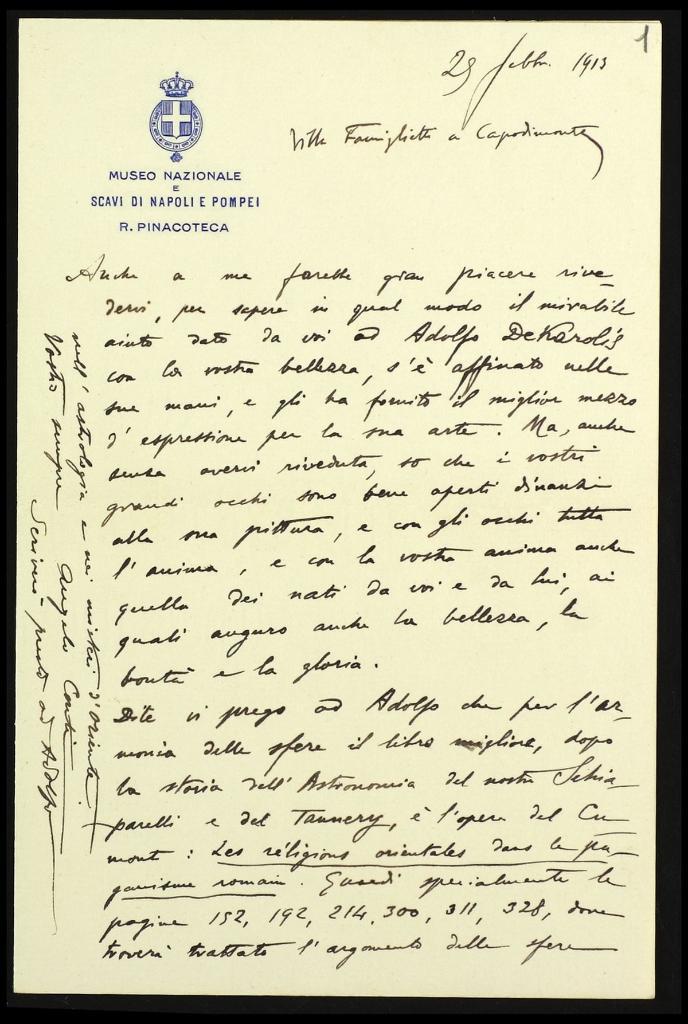 1
29 febbr. 1913
Villa Famiglietti a Capodimonte
MUSEO NAZIONALE
E
SCAVI DI NAPOLI E POMPEI
R. PINACOTECA
Anche a me farebbe gran piacere rive-
dervi, per sapere in qual modo il mirabile
aiuto dato da voi ad Adolfo DeKarolis
con la vostra bellezza, s'è affinato nelle
sue mani, e gli ha fornito il miglior mezzo
d'espressione per la sua arte. Ma, anche
senza avervi riveduta, so che i vostri
grandi occhi sono bene aperti dinanzi
alla sua pittura, e con gli occhi tutta
l'anima, e con la vostra anima anche
quella dei nati da voi e da lui, ai
quali auguro anche la bellezza, la
bontà e la gloria.
Dite vi prego ad Adolfo che per l'ar-
monia delle sfere il libro migliore, dopo
la storia dell'Astronomia del nostro Schia-
parelli e del Tannery, è l'opera del Cu-
mont: Les réligions orientales dans le pa-
ganisme romain. Guardi specialmente le
pagine 152, 192, 214, 300, 311, 328, dove
troverà trattato l'argomento delle sfere
nell'astrologia e nei misteri d'oriente.
Vostro sempre Angelo Conti
Scriverò presto ad Adolfo